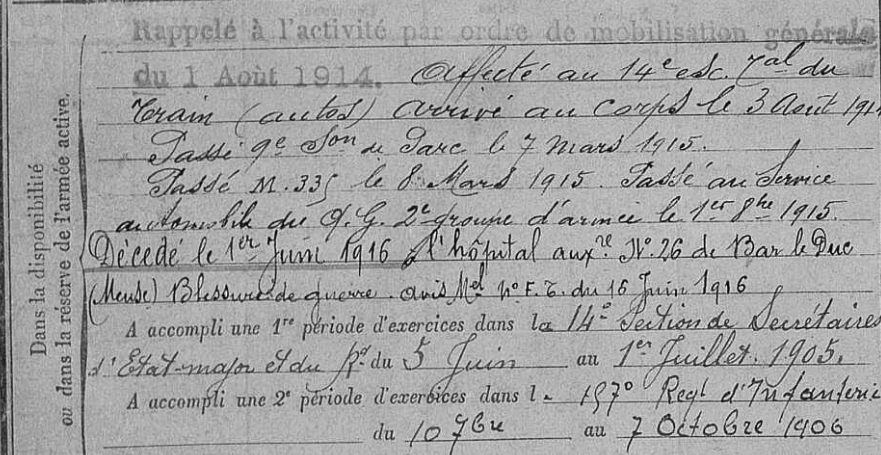 Rappelé à l'activité par ordre de mobilisation générale
du 1 Août 1914. Affecté au 14e esc. du
Train (autos) arrivé au corps le 3 Août 191
Passé 9e Son de Parc le 7 Mars 1915.
Passé M. 335 le 8 Mars 1915. Passé au Service
automobile du Q.G. 2e groupe d'armée le 1er 8bre 1915.
Décédé le 1er Juin 1916 l'hôpital auxre No. 26 de Bar le Duc
(Meuse) Blessures de guerre. avis Mel no F.T. du 16 Juin 1916
Dans la disponibilité
ou dans la réserve de l'armée active.
A accompli une 1re période d'exercices dans la 14e Section de Secrétaires
d'Etat-major et du Rt du 5 Juin au 1er Juillet 1905.
A accompli une 2e période d'exercices dans l 157o Regt d'Infanterie
du 10 7bre au 7 Octobre 1906